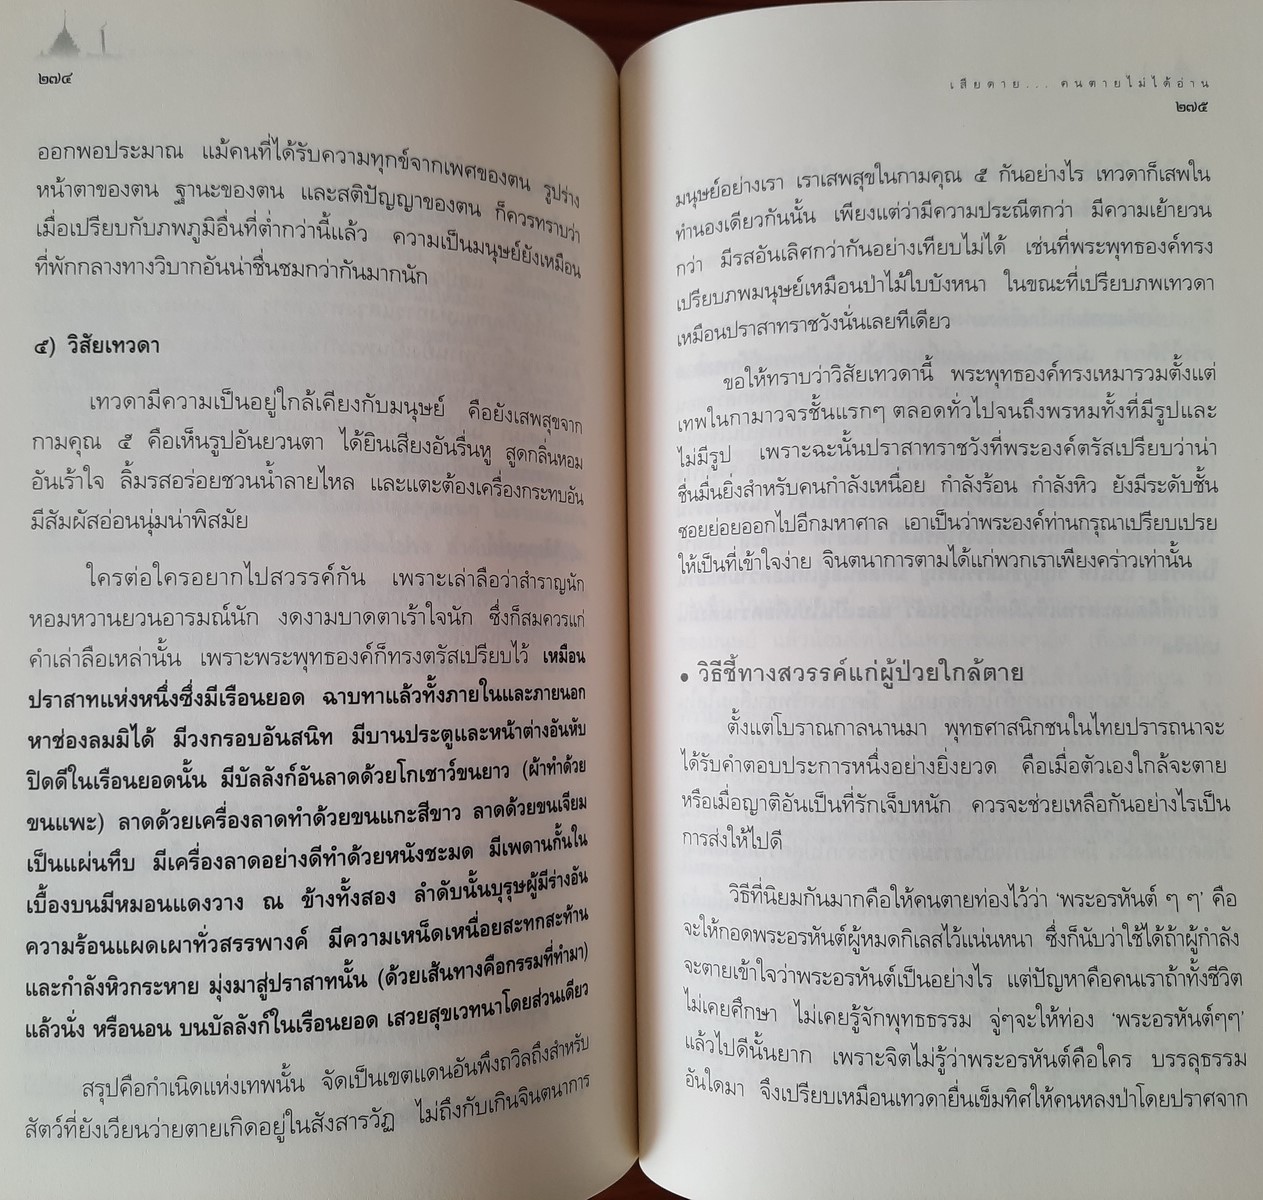 ๒๗๔
ออกพอประมาณ แม้คนที่ได้รับความทุกข์จากเพศของตน รูปร่าง
หน้าตาของตน ฐานะของตน และสติปัญญาของตน ก็ควรทราบว่า
เมื่อเปรียบกับภพภูมิอื่นที่ต่ำกว่านี้แล้ว ความเป็นมนุษย์ยังเหมือน
ที่พักกลางทางวิบากอันน่าชื่นชมกว่ากันมากนัก
๕) วิสัยเทวดา
เทวดามีความเป็นอยู่ใกล้เคียงกับมนุษย์ คือยังเสพสุขจาก
กามคุณ ๕ คือเห็นรูปอันยวนตา ได้ยินเสียงอันรื่นหู สูดกลิ่นหอม
อันเร้าใจ ลิ้มรสอร่อยชวนน้ำลายไหล และแตะต้องเครื่องกระทบอัน
มีสัมผัสอ่อนนุ่มน่าพิสมัย
ใครต่อใครอยากไปสวรรค์กัน เพราะเล่าลือว่าสำราญนัก
หอมหวานยวนอารมณ์นัก งดงามบาดตาเร้าใจนัก ซึ่งก็สมควรแก่
คำเล่าลือเหล่านั้น เพราะพระพุทธองค์ก็ทรงตรัสเปรียบไว้ เหมือน
ปราสาทแห่งหนึ่งซึ่งมีเรือนยอด ฉาบทาแล้วทั้งภายในและภายนอก
หาช่องลมมิได้ มีวงกรอบอันสนิท มีบานประตูและหน้าต่างอันหับ
ปิดดีในเรือนยอดนั้น มีบัลลังก์อันลาดด้วยโกเชาว์ขนยาว (ผ้าทำด้วย
ขนแพะ) ลาดด้วยเครื่องลาดทำด้วยขนแกะสีขาว ลาดด้วยขนเจียม
เป็นแผ่นทึบ มีเครื่องลาดอย่างดีทำด้วยหนังชะมด มีเพดานกั้นใน
เบื้องบนมีหมอนแดงวาง ณ ข้างทั้งสอง ลำดับนั้นบุรุษผู้มีร่างอัน
ความร้อนแผดเผาทั่วสรรพางค์ มีความเหน็ดเหนื่อยสะทกสะท้าน
และกำลังหิวกระหาย มุ่งมาสู่ปราสาทนั้น (ด้วยเส้นทางคือกรรมที่ทำมา)
แล้วนั่ง หรือนอน บนบัลลังก์ในเรือนยอด เสวยสุขเวทนาโดยส่วนเดียว
สรุปคือกำเนิดแห่งเทพนั้น จัดเป็นเขตแดนอันพึงถวิลถึงสำหรับ
สัตว์ที่ยังเวียนว่ายตายเกิดอยู่ในสังสารวัฏ ไม่ถึงกับเกินจินตนาการ
เสียดาย... คนตายไม่ได้อ่าน
๒๗๕
มนุษย์อย่างเรา เราเสพสุขในกามคุณ ๕ กันอย่างไร เทวดาก็เสพใน
ทำนองเดียวกันนั้น เพียงแต่ว่ามีความประณีตกว่า มีความเย้ายวน
กว่า มีรสอันเลิศกว่ากันอย่างเทียบไม่ได้ เช่นที่พระพุทธองค์ทรง
เปรียบภพมนุษย์เหมือนป่าไม้ใบบังหนา ในขณะที่เปรียบภพเทวดา
เหมือนปราสาทราชวังนั่นเลยทีเดียว
ขอให้ทราบว่าวิสัยเทวดานี้ พระพุทธองค์ทรงเหมารวมตั้งแต่
เทพในกามาวจรชั้นแรกๆ ตลอดทั่วไปจนถึงพรหมทั้งที่มีรูปและ
ไม่มีรูป เพราะฉะนั้นปราสาทราชวังที่พระองค์ตรัสเปรียบว่าน่า
ชื่นมื่นยิ่งสำหรับคนกำลังเหนื่อย กำลังร้อน กำลังหิว ยังมีระดับชั้น
ซอยย่อยออกไปอีกมหาศาล เอาเป็นว่าพระองค์ท่านกรุณาเปรียบเปรย
ให้เป็นที่เข้าใจง่าย จินตนาการตามได้แก่พวกเราเพียงคร่าวเท่านั้น
• วิธีชี้ทางสวรรค์แก่ผู้ป่วยใกล้ตาย
ตั้งแต่โบราณกาลนานมา พุทธศาสนิกชนในไทยปรารถนาจะ
ได้รับคำตอบประการหนึ่งอย่างยิ่งยวด คือเมื่อตัวเองใกล้จะตาย
หรือเมื่อญาติอันเป็นที่รักเจ็บหนัก ควรจะช่วยเหลือกันอย่างไรเป็น
การส่งให้ไปดี
วิธีที่นิยมกันมากคือให้คนตายท่องไว้ว่า ‘พระอรหันต์ ๆ ๆ’ คือ
จะให้กอดพระอรหันต์ผู้หมดกิเลสไว้แน่นหนา ซึ่งก็นับว่าใช้ได้ถ้าผู้กำลัง
จะตายเข้าใจว่าพระอรหันต์เป็นอย่างไร แต่ปัญหาคือคนเราถ้าทั้งชีวิต
ไม่เคยศึกษา ไม่เคยรู้จักพุทธธรรม จู่ๆจะให้ท่อง ‘พระอรหันต์ๆๆ’
แล้วไปดีนั้นยาก เพราะจิตไม่รู้ว่าพระอรหันต์คือใคร บรรลุธรรม
อันใดมา จึงเปรียบเหมือนเทวดายื่นเข็มทิศให้คนหลงป่าโดยปราศจาก